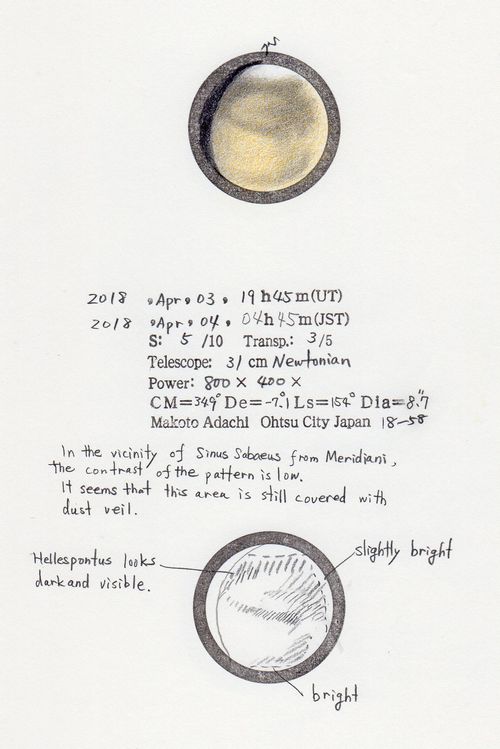 2018 , Apr , 03 , 19h45m(UT)
2018 , Apr , 04 , 04h45m(JST)
S: 5 /10 Transp.: 3/5
Telescope: 31 cm Newtonian
Power: 800 × 400 ×
CM=349° De=-7.°1 Ls=154° Dia=8."7
Makoto Adachi Ohtsu City Japan 18-58
In the vicinity of Sinus Sabaeus from Meridiani,
the contrast of the pattern is low.
It seems that this area is still covered with
dust veil.
Hellespontus looks
dark and visible.
slightly bright
bright